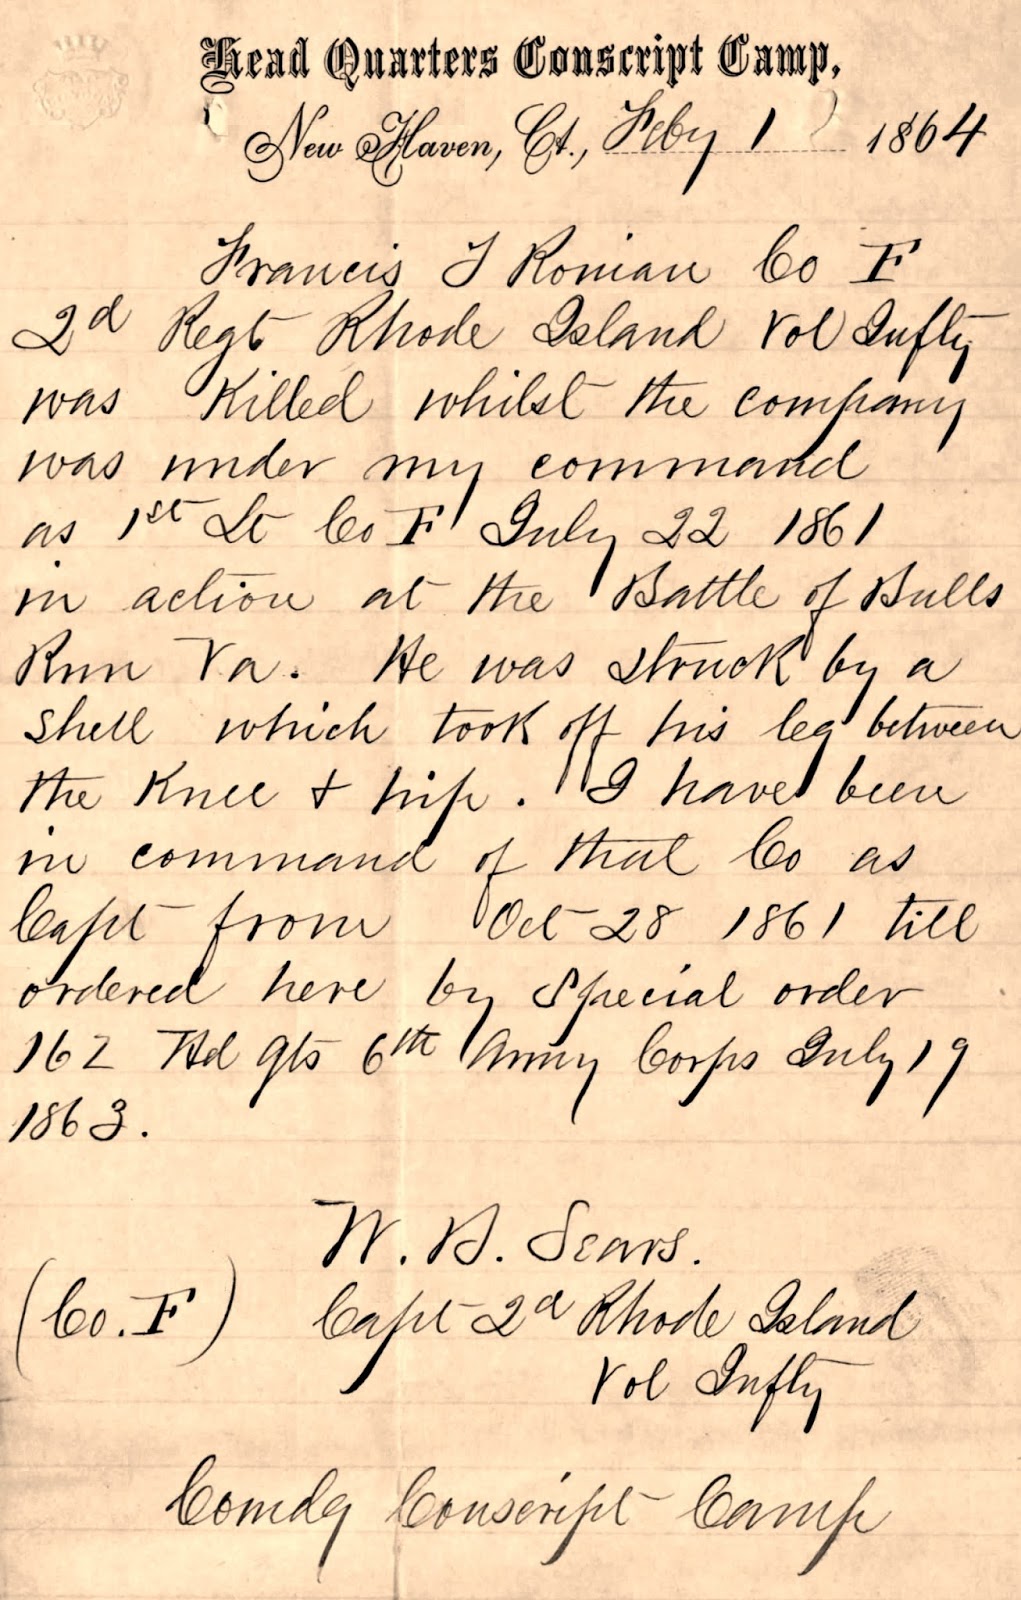 Head Quarters Conscript Camp,
New Haven, Ct., Feby 1 1864
Francis T Ronian Co F
2d Regt Rhode Island Vol Infty
was Killed whilst the company
was under my command
as 1st Lt Co F July 22 1861
in action at the Battle of Bulls
Run Va. He was struck by a
shell which took off his leg between
the Knee & hip. I have been
in command of that Co as
Capt from Oct 28 1861 till
ordered here by Special order
162 Hd Qts 6th Army Corps July 19
1863.
W. B. Sears.
(Co. F) Capt 2d Rhode Island
Vol Infty
Comdg Conscript Camp